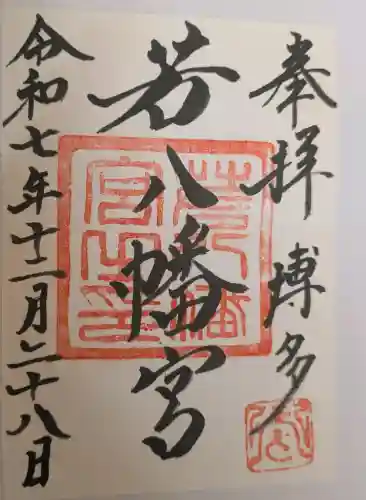 奉拝 博多
若八幡宮
令和七年十二月二十八日
若八幡宮之印